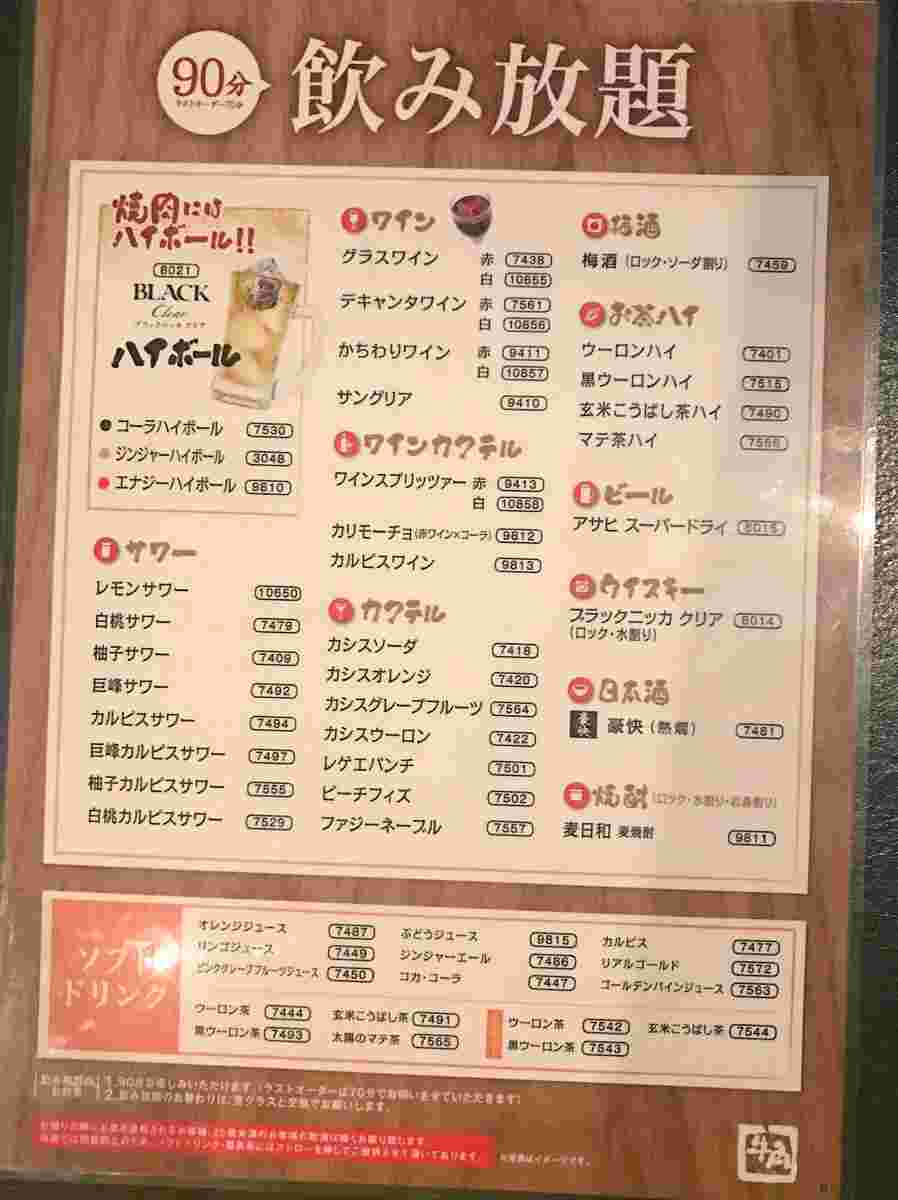 90分
ラストオーダー70分
飲み放題
焼肉には
ハイボール!!
8021
BLACK
Clear
ブラックニッカ クリア
ハイボール
コーラハイボール 7530
ジンジャーハイボール 3048
エナジーハイボール 9810
サワー
レモンサワー 10650
白桃サワー 7479
柚子サワー 7409
巨峰サワー 7492
カルピスサワー 7494
巨峰カルピスサワー 7497
柚子カルピスサワー 7555
白桃カルピスサワー 7529
ワイン
グラスワイン 赤 7438
白 10655
デキャンタワイン 赤 7561
白 10656
かちわりワイン 赤 9411
白 10857
サングリア 9410
ワインカクテル
ワインスプリッツァー 赤 9413
白 10858
カリモーチョ(赤ワイン×コーラ) 9812
カルピスワイン 9813
カクテル
カシスソーダ 7418
カシスオレンジ 7420
カシスグレープフルーツ 7564
カシスウーロン 7422
レゲエパンチ 7501
ピーチフィズ 7502
ファジーネーブル 7557
梅酒
梅酒(ロック・ソーダ割り) 7459
お茶ハイ
ウーロンハイ 7401
黒ウーロンハイ 7515
玄米こうばし茶ハイ 7490
マテ茶ハイ 7566
ビール
アサヒ スーパードライ 8015
ウイスキー
ブラックニッカ クリア 8014
(ロック・水割り)
日本酒
豪快 豪快(熱燗) 7481
焼酎(ロック・水割り・お湯割り)
麦日和 麦焼酎 9811
ソフト
ドリンク
オレンジジュース 7487
リンゴジュース 7449
ピンクグレープフルーツジュース 7450
ぶどうジュース 9815
ジンジャーエール 7466
コカ・コーラ 7447
カルピス 7477
リアルゴールド 7572
ゴールデンパインジュース 7563
ウーロン茶 7444
黒ウーロン茶 7493
玄米こうばし茶 7491
太陽のマテ茶 7565
ウーロン茶 7542
黒ウーロン茶 7543
玄米こうばし茶 7544
1.90分お楽しみいただけます。(ラストオーダーは70分でお伺いさせていただきます)
2.飲み放題のお替わりは、空グラスと交換でお願いします。
※写真はイメージです。
牛角